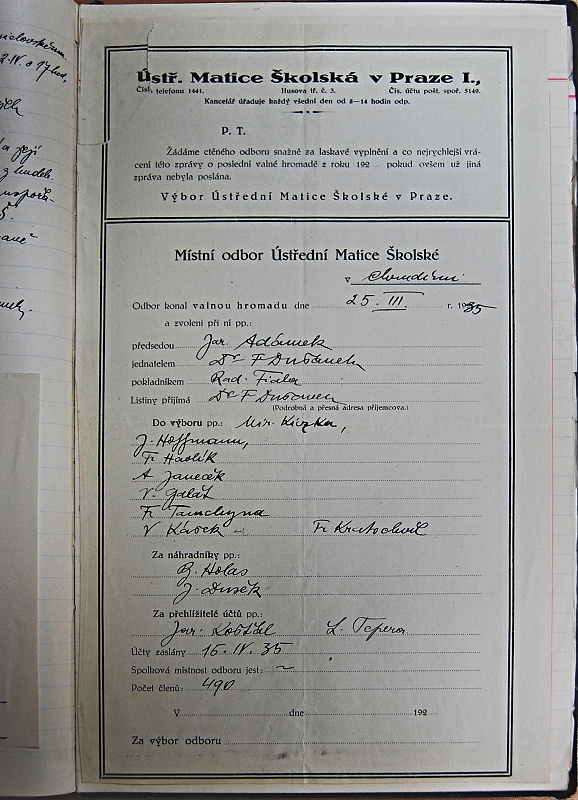 Ústř. Matice Školská v Praze I.,
Čísl. telefonu 1441. Husova tř. č. 3. Čís. účtu pošt. spoř. 5149.
Kancelář úřaduje každý všední den od 8—14 hodin odp.
P. T.
Žádáme ctěného odboru snažně za laskavé vyplnění a co nejrychlejší vrá-
cení této zprávy o poslední valné hromadě z roku 192 pokud ovšem už jiná
zpráva nebyla poslána.
Výbor Ústřední Matice Školské v Praze.
Místní odbor Ústřední Matice Školské
v Chrudimi
Odbor konal valnou hromadu dne 25. III. r. 1935
a zvoleni při ní pp.:
předsedou Jar. Adámek
jednatelem Dr F Dušánek
pokladníkem Rad. Fiala
Listiny přijímá Dr F Dušánek
(Podrobná a přesná adresa příjemcova.)
Do výboru pp.:
J. Hoffmann,
Fr Havlík
A Janeček
V. Galát
Fr
V Kášek Fr Kratochvíl
Za náhradníky pp.:
B. Holas
J. Dušek
Za přehlížitelé účtů pp.:
Jar. Košťál L. Tepera
Účty zaslány 15. IV. 35
Spolková místnost odboru jest: ~
Počet členů: 490
V dne 192
Za výbor odboru